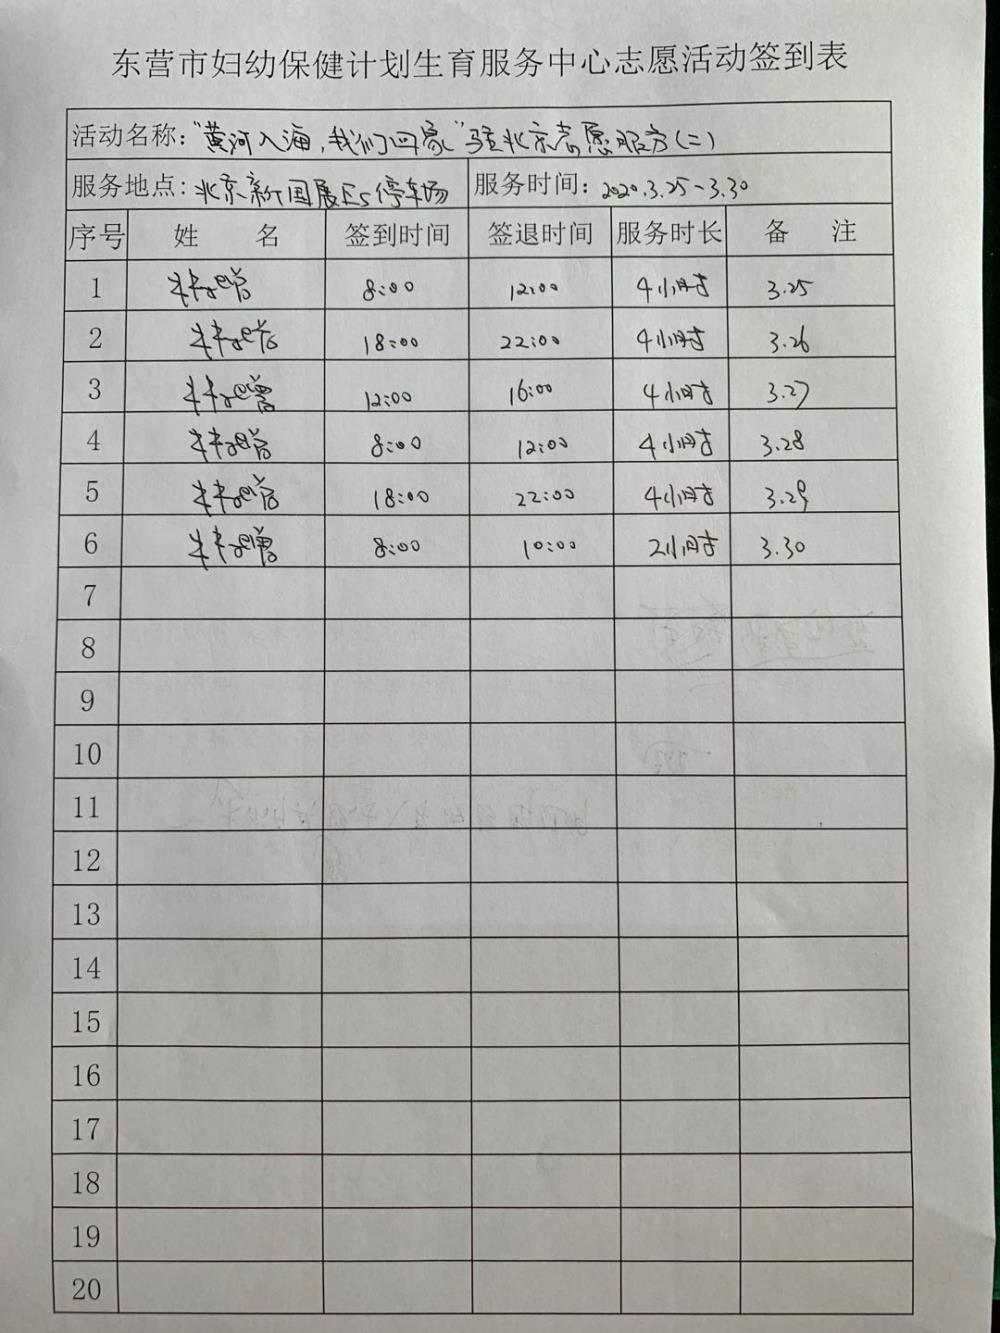 东营市妇幼保健计划生育服务中心志愿活动签到表
活动名称："黄河入海，我们回家"驻北京志愿服务(二)
服务地点：北京新国展E5停车场 服务时间：2020.3.25-3.30
序号 姓 名 签到时间 签退时间 服务时长 备 注
1 8:00 12:00 4小时 3.25
2 18:00 22:00 4小时 3.26
3 12:00 16:00 4小时 3.27
4 8:00 12:00 4小时 3.28
5 18:00 22:00 4小时 3.29
6 8:00 10:00 2小时 3.30
7
8
9
10
11
12
13
14
15
16
17
18
19
20